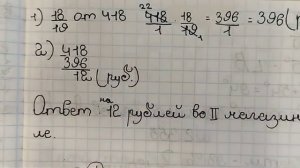 1) 18/19 от 418 418/1 · 18/19 = 396/1 = 396 (р
22 1
2) 418
396
12 (руб.)
Ответ: на 12 рублей во II магазин
ле.